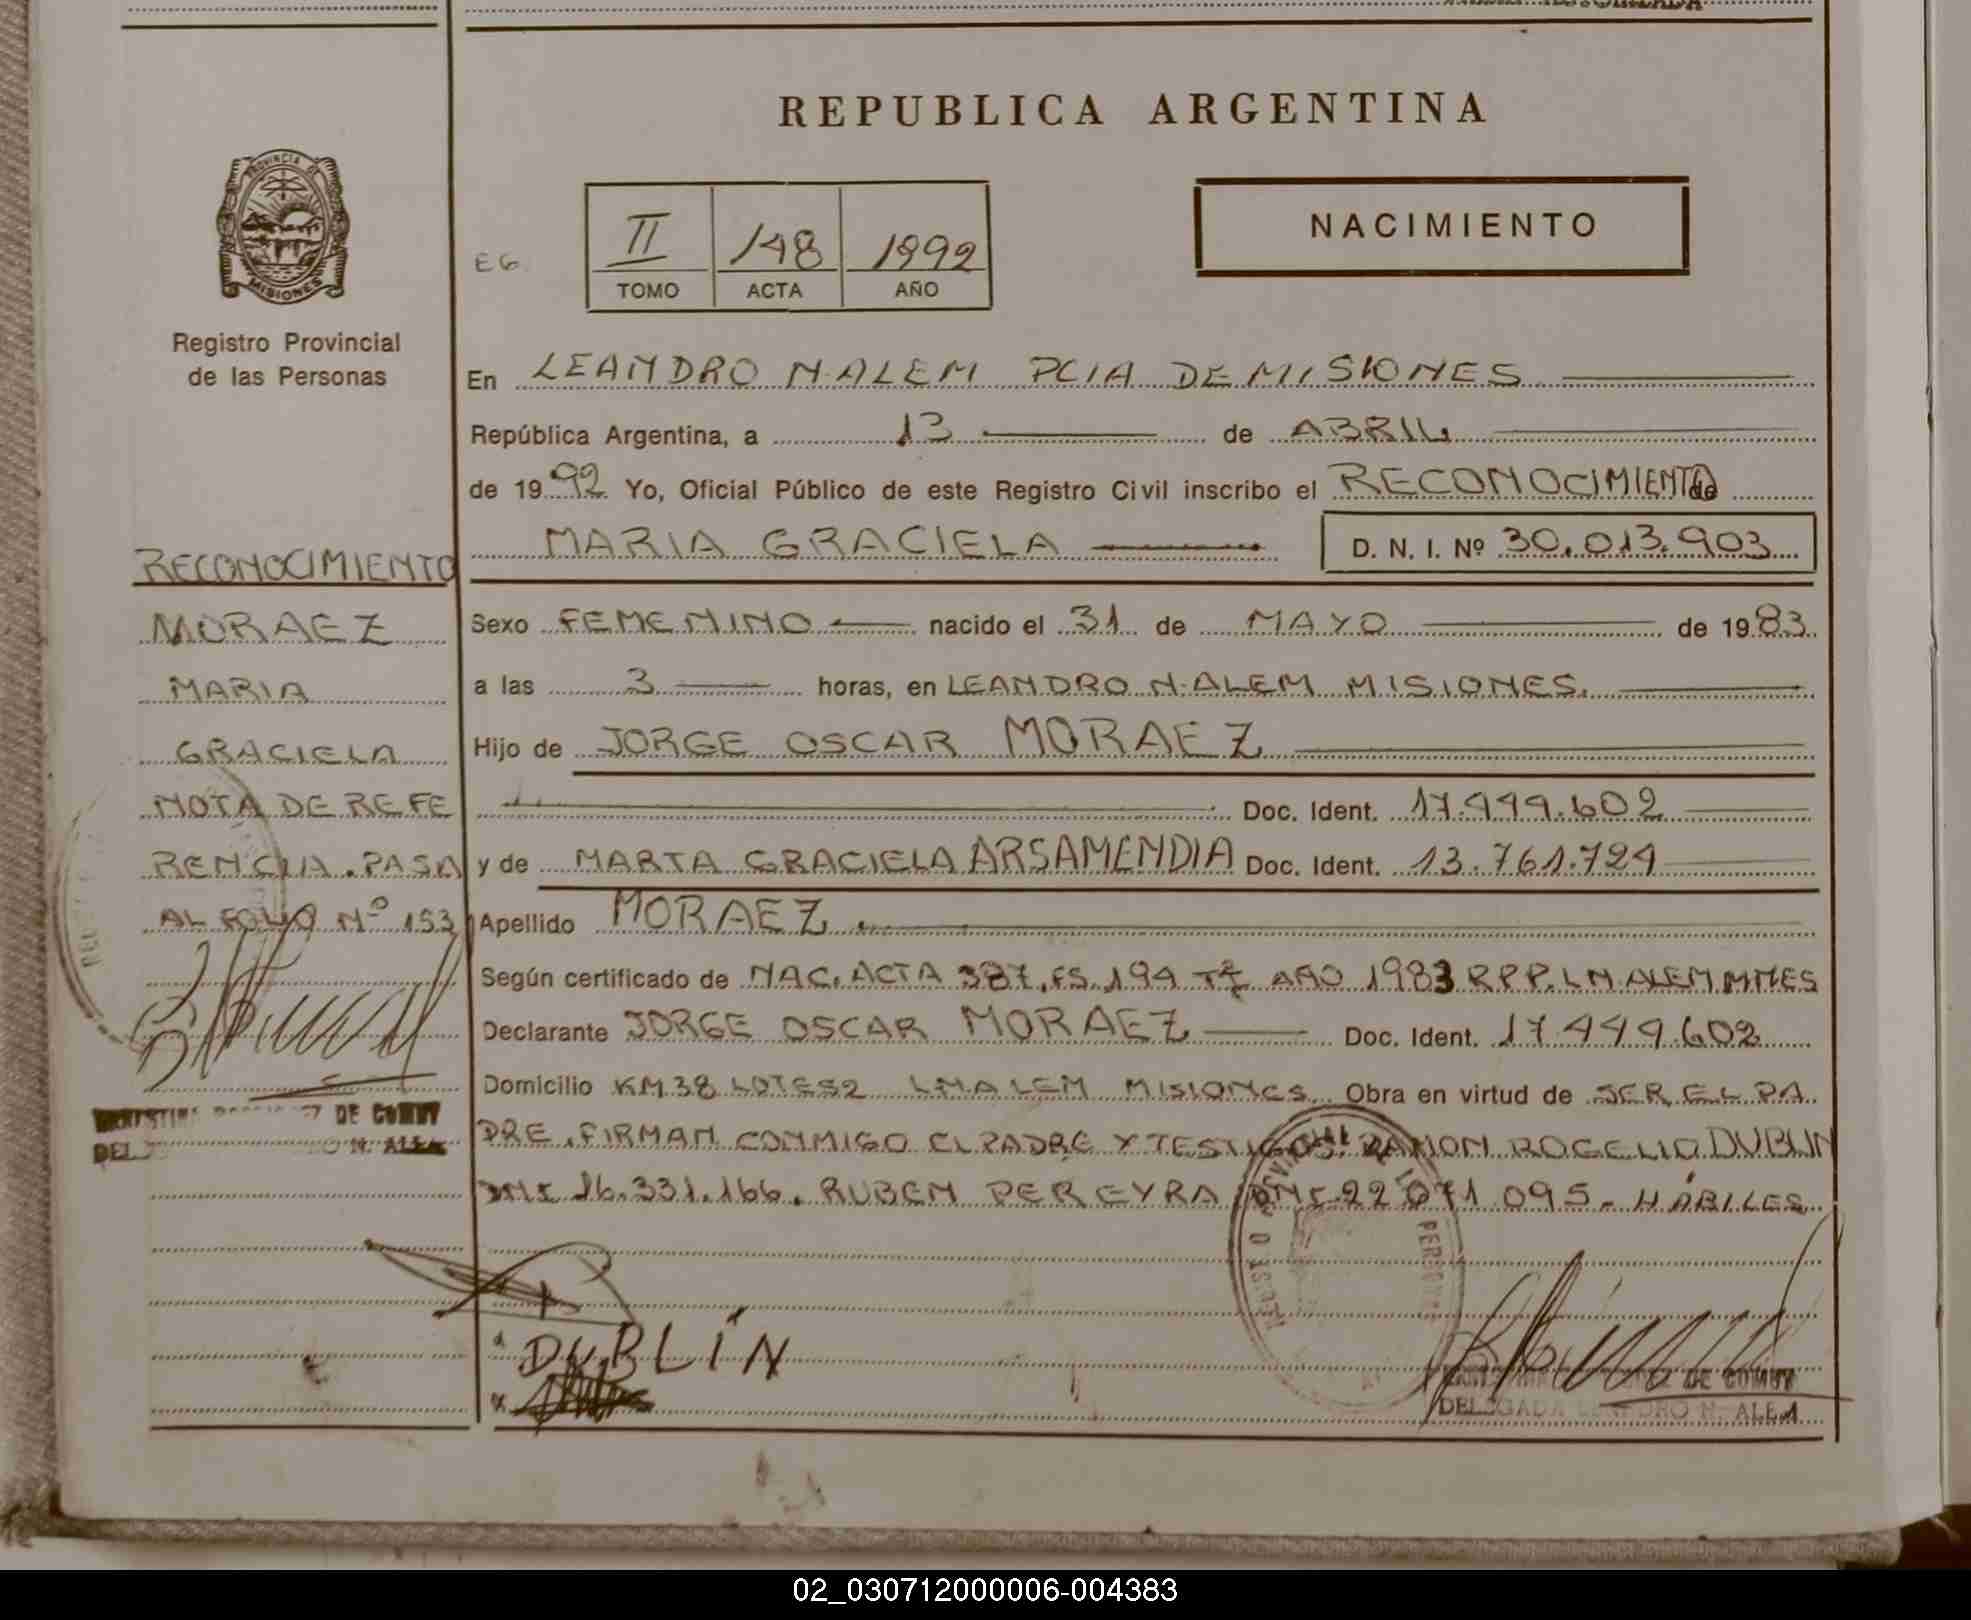 REPUBLICA ARGENTINA
PROVINCIA DE
MISIONES
Registro Provincial
de las Personas
E6
II 148 1992
TOMO ACTA AÑO
NACIMIENTO
En LEANDRO N. ALEM PCIA DE MISIONES
República Argentina, a 13 de ABRIL
de 1992 Yo, Oficial Público de este Registro Civil inscribo el RECONOCIMIENTO de
MARIA GRACIELA D. N. I. Nº 30.013.903
Sexo FEMENINO nacido el 31 de MAYO de 1983
a las 3 horas, en LEANDRO N. ALEM MISIONES.
Hijo de JORGE OSCAR MORAEZ
Doc. Ident. 17.449.602
y de MARTA GRACIELA ARSAMENDIA Doc. Ident. 13.761.724
Apellido MORAEZ
Según certificado de NAC. ACTA 387. FS. 194 Tº AÑO 1983 R.P.P. L N ALEM MNES
Declarante JORGE OSCAR MORAEZ Doc. Ident. 17 449.602
Domicilio KM.38 LOTE52 L.N.ALEM MISIONES. Obra en virtud de SER EL PA
DRE. FIRMAN CONMIGO EL PADRE Y TESTIGOS: RAMON ROGELIO DUBLIN
DNI 16.331.166. RUBEN PEREYRA DNI 22 071 095.- HÁBILES
DUBLIN
DE COMUY
DELEGADA LEANDRO N. ALEM
RECONOCIMIENTO
MORAEZ
MARIA
GRACIELA
NOTA DE REFE
RENCIA. PASA
AL FOLIO Nº 153
DE COMUY
N. ALEM
02_030712000006-004383